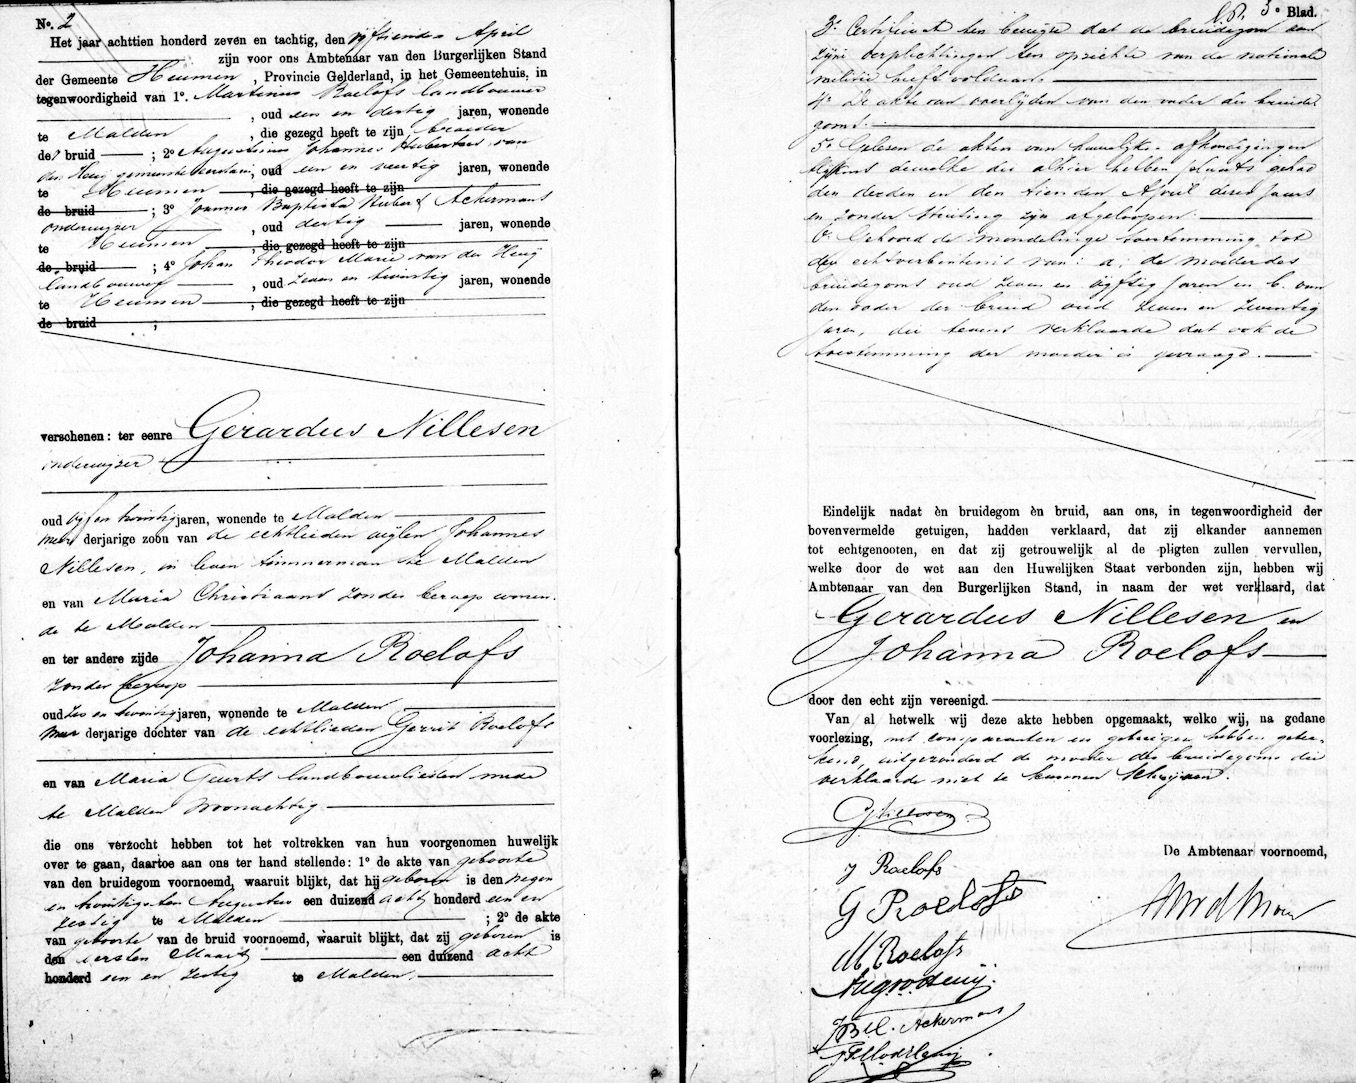 No. 2
Het jaar achttien honderd zeven en tachtig, den vijftienden April
zijn voor ons Ambtenaar van den Burgerlijken Stand
der Gemeente Heumen, Provincie Gelderland, in het Gemeentehuis, in
tegenwoordigheid van 1o. Martinus Roelofs landbouwer
, oud een en dertig jaren, wonende
te Malden, die gezegd heeft te zijn broeder
der bruid ; 2o Augustinus Johannes Hubertus van
den Heuij gemeente , oud een en veertig jaren, wonende
te Heumen, die gezegd heeft te zijn
de bruid ; 3o Joannes Baptista Hubert Ackermans
onderwijzer, oud dertig jaren, wonende
te Heumen, die gezegd heeft te zijn
de bruid ; 4o Johan Theodor Marie van der Heuij
landbouwer, oud zeven en twintig jaren, wonende
te Heumen, die gezegd heeft te zijn
de bruid ;
verschenen: ter eenre Gerardus Nillesen
onderwijzer
oud vijf en twintig jaren, wonende te Malden
meerderjarige zoon van de echtlieden wijlen Johannes
Nillesen, in leven timmerman te Malden
en van Maria Christiaans zonder beroep wonen-
de te Malden
en ter andere zijde Johanna Roelofs
zonder beroep
oud zes en twintig jaren, wonende te Malden
meerderjarige dochter van de echtlieden Gerrit Roelofs
en van Maria Geurts landbouwlieden mede
te Malden woonachtig
die ons verzocht hebben tot het voltrekken van hun voorgenomen huwelijk
over te gaan, daartoe aan ons ter hand stellende: 1o de akte van geboorte
van den bruidegom voornoemd, waaruit blijkt, dat hij geboren is den negen
en twintigsten Augustus een duizend acht honderd een en
zestig te Malden ; 2o de akte
van geboorte van de bruid voornoemd, waaruit blijkt, dat zij geboren is
den eersten Maart een duizend acht
honderd een en zestig te Malden.
3o Blad.
3o Certificaat ten bewijze dat de bruidegom aan
zijne verplichtingen ten opzichte van de nationale
militie heeft voldaan.
4o De akte van overlijden van den vader des bruide-
goms.
5o Gelezen de akten van huwelijks-afkondigingen
blijkens dewelke die alhier hebben plaats gehad
den derden en den tienden April dezes jaars
en zonder stuiting zijn afgeloopen.
6o Gehoord de mondelinge toestemming tot
deze echtverbintenis van: a, de moeder des
bruidegoms oud zeven en vijftig jaren en b. van
den vader der bruid oud zeven en zeventig
jaren, die tevens verklaarde dat ook de
toestemming der moeder is gevraagd.
Eindelijk nadat èn bruidegom èn bruid, aan ons, in tegenwoordigheid der
bovenvermelde getuigen, hadden verklaard, dat zij elkander aannemen
tot echtgenooten, en dat zij getrouwelijk al de pligten zullen vervullen,
welke door de wet aan den Huwelijken Staat verbonden zijn, hebben wij
Ambtenaar van den Burgerlijken Stand, in naam der wet verklaard, dat
Gerardus Nillesen en
Johanna Roelofs
door den echt zijn vereenigd.
Van al hetwelk wij deze akte hebben opgemaakt, welke wij, na gedane
voorlezing, met comparanten en getuigen hebben getee-
kend, uitgezonderd de moeder des bruidegoms die
verklaarde niet te kunnen schrijven.
GNillesen
De Ambtenaar voornoemd,
J Roelofs
G Roelofs
M Roelofs
JBH. Ackermans